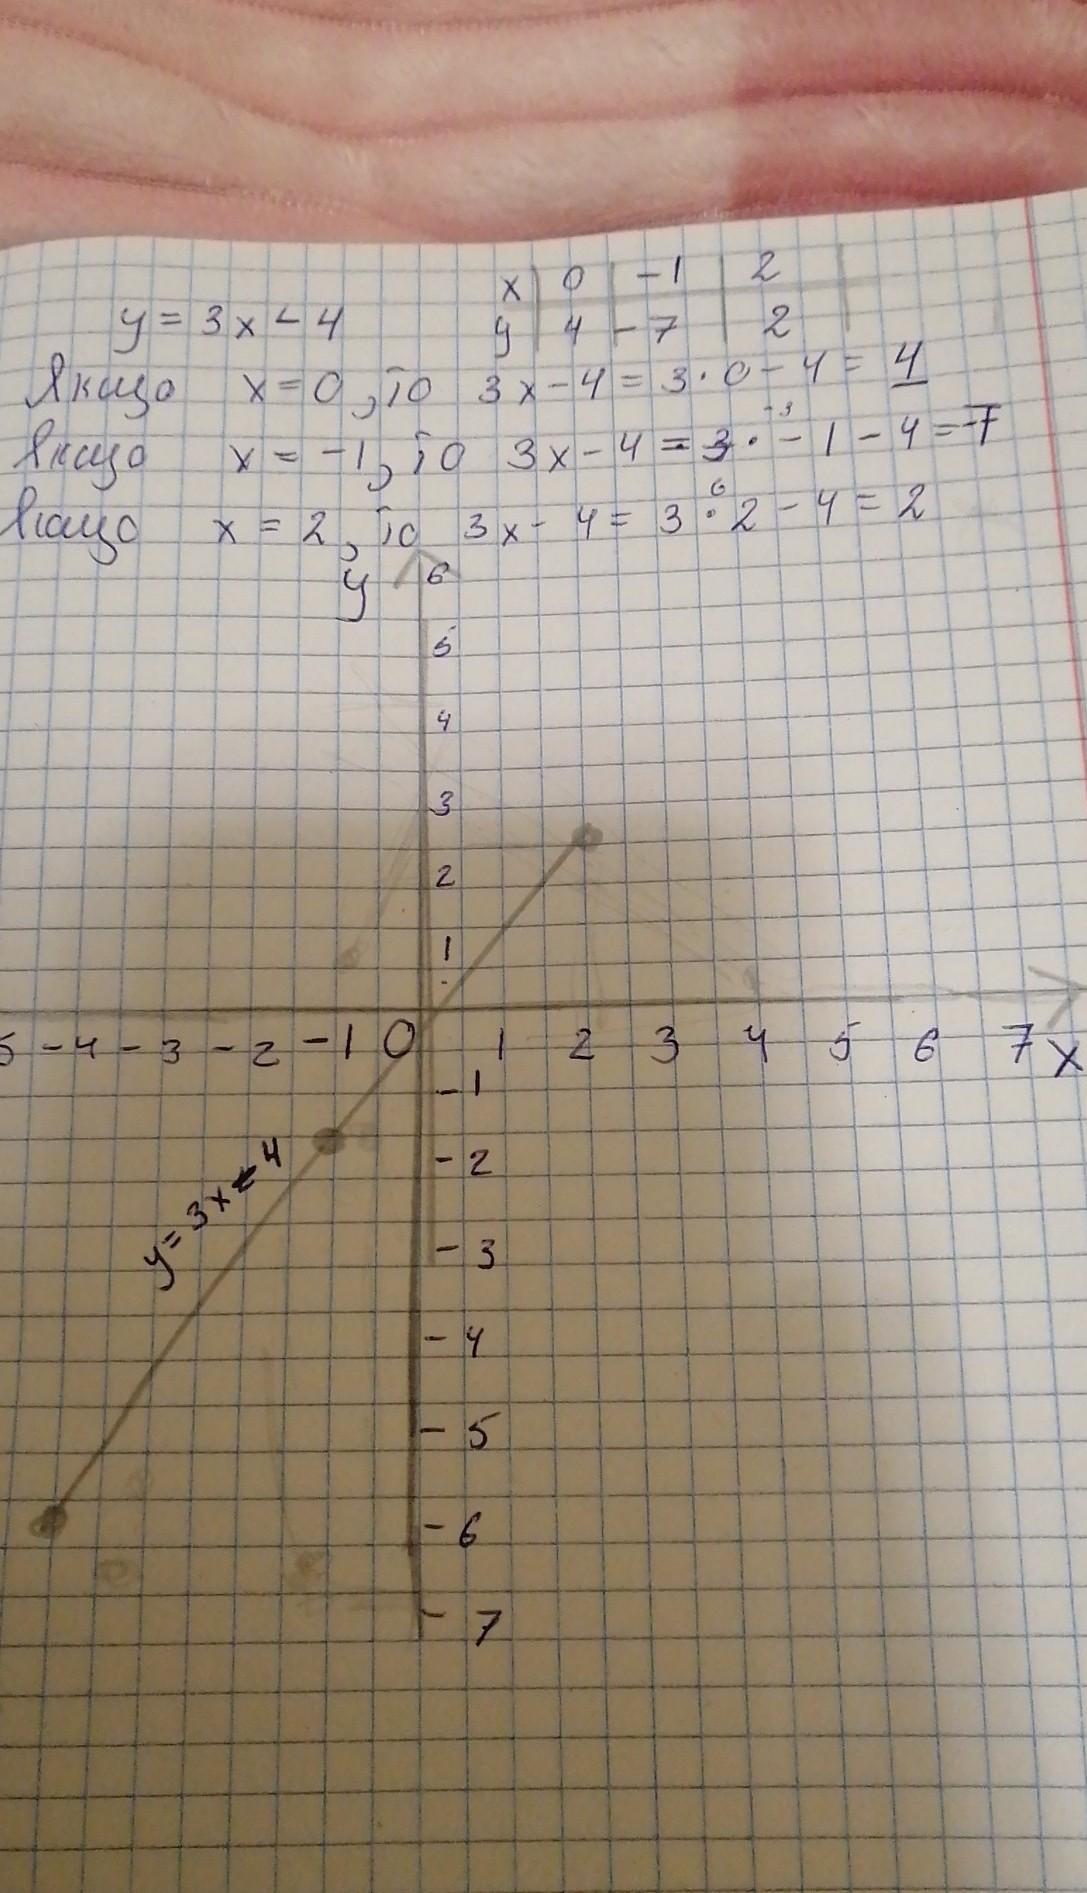 x 0 -1 2
y = 3x - 4 y 4 -7 2
Якщо x = 0, то 3x - 4 = 3 · 0 - 4 = 4
Якщо x = -1, то 3x - 4 = 3 · -1 - 4 = -7
-3
Якщо x = 2, то 3x - 4 = 3 · 2 - 4 = 2
6
y 6
5
4
3
2
1
-4 -3 -2 -1 0 1 2 3 4 5 6 7 x
-1
-2
y = 3x - 4
-3
-4
-5
-6
-7